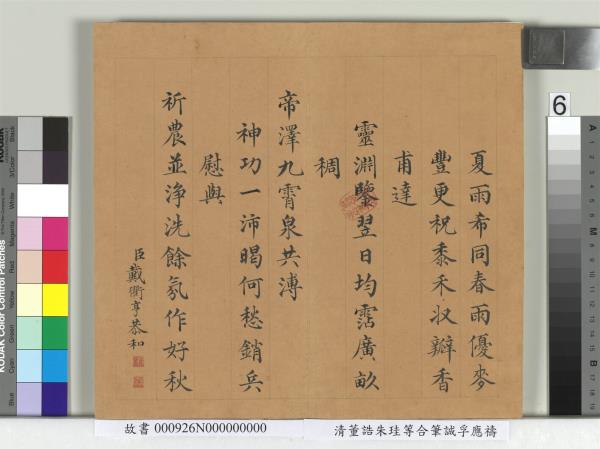 夏雨希同春雨優麥
豐更祝黍禾收瓣香
甫達
靈淵鑒翌日均霑廣畝
稠
帝澤九霄泉共溥
神功一沛暍何愁銷兵
慰與
祈農並淨洗餘氛作好秋
臣戴衢亨恭和
故書 000926N000000000
清董誥朱珪等合筆誠孚應禱
6
KODAK Color Control Patches
KODAK
Black
3/Color
White
Magenta
Red
Yellow
Green
Cyan
Blue
A
1
2
3
4
5
6
M
8
9
10
11
12
13
14
15
B
17
18
19